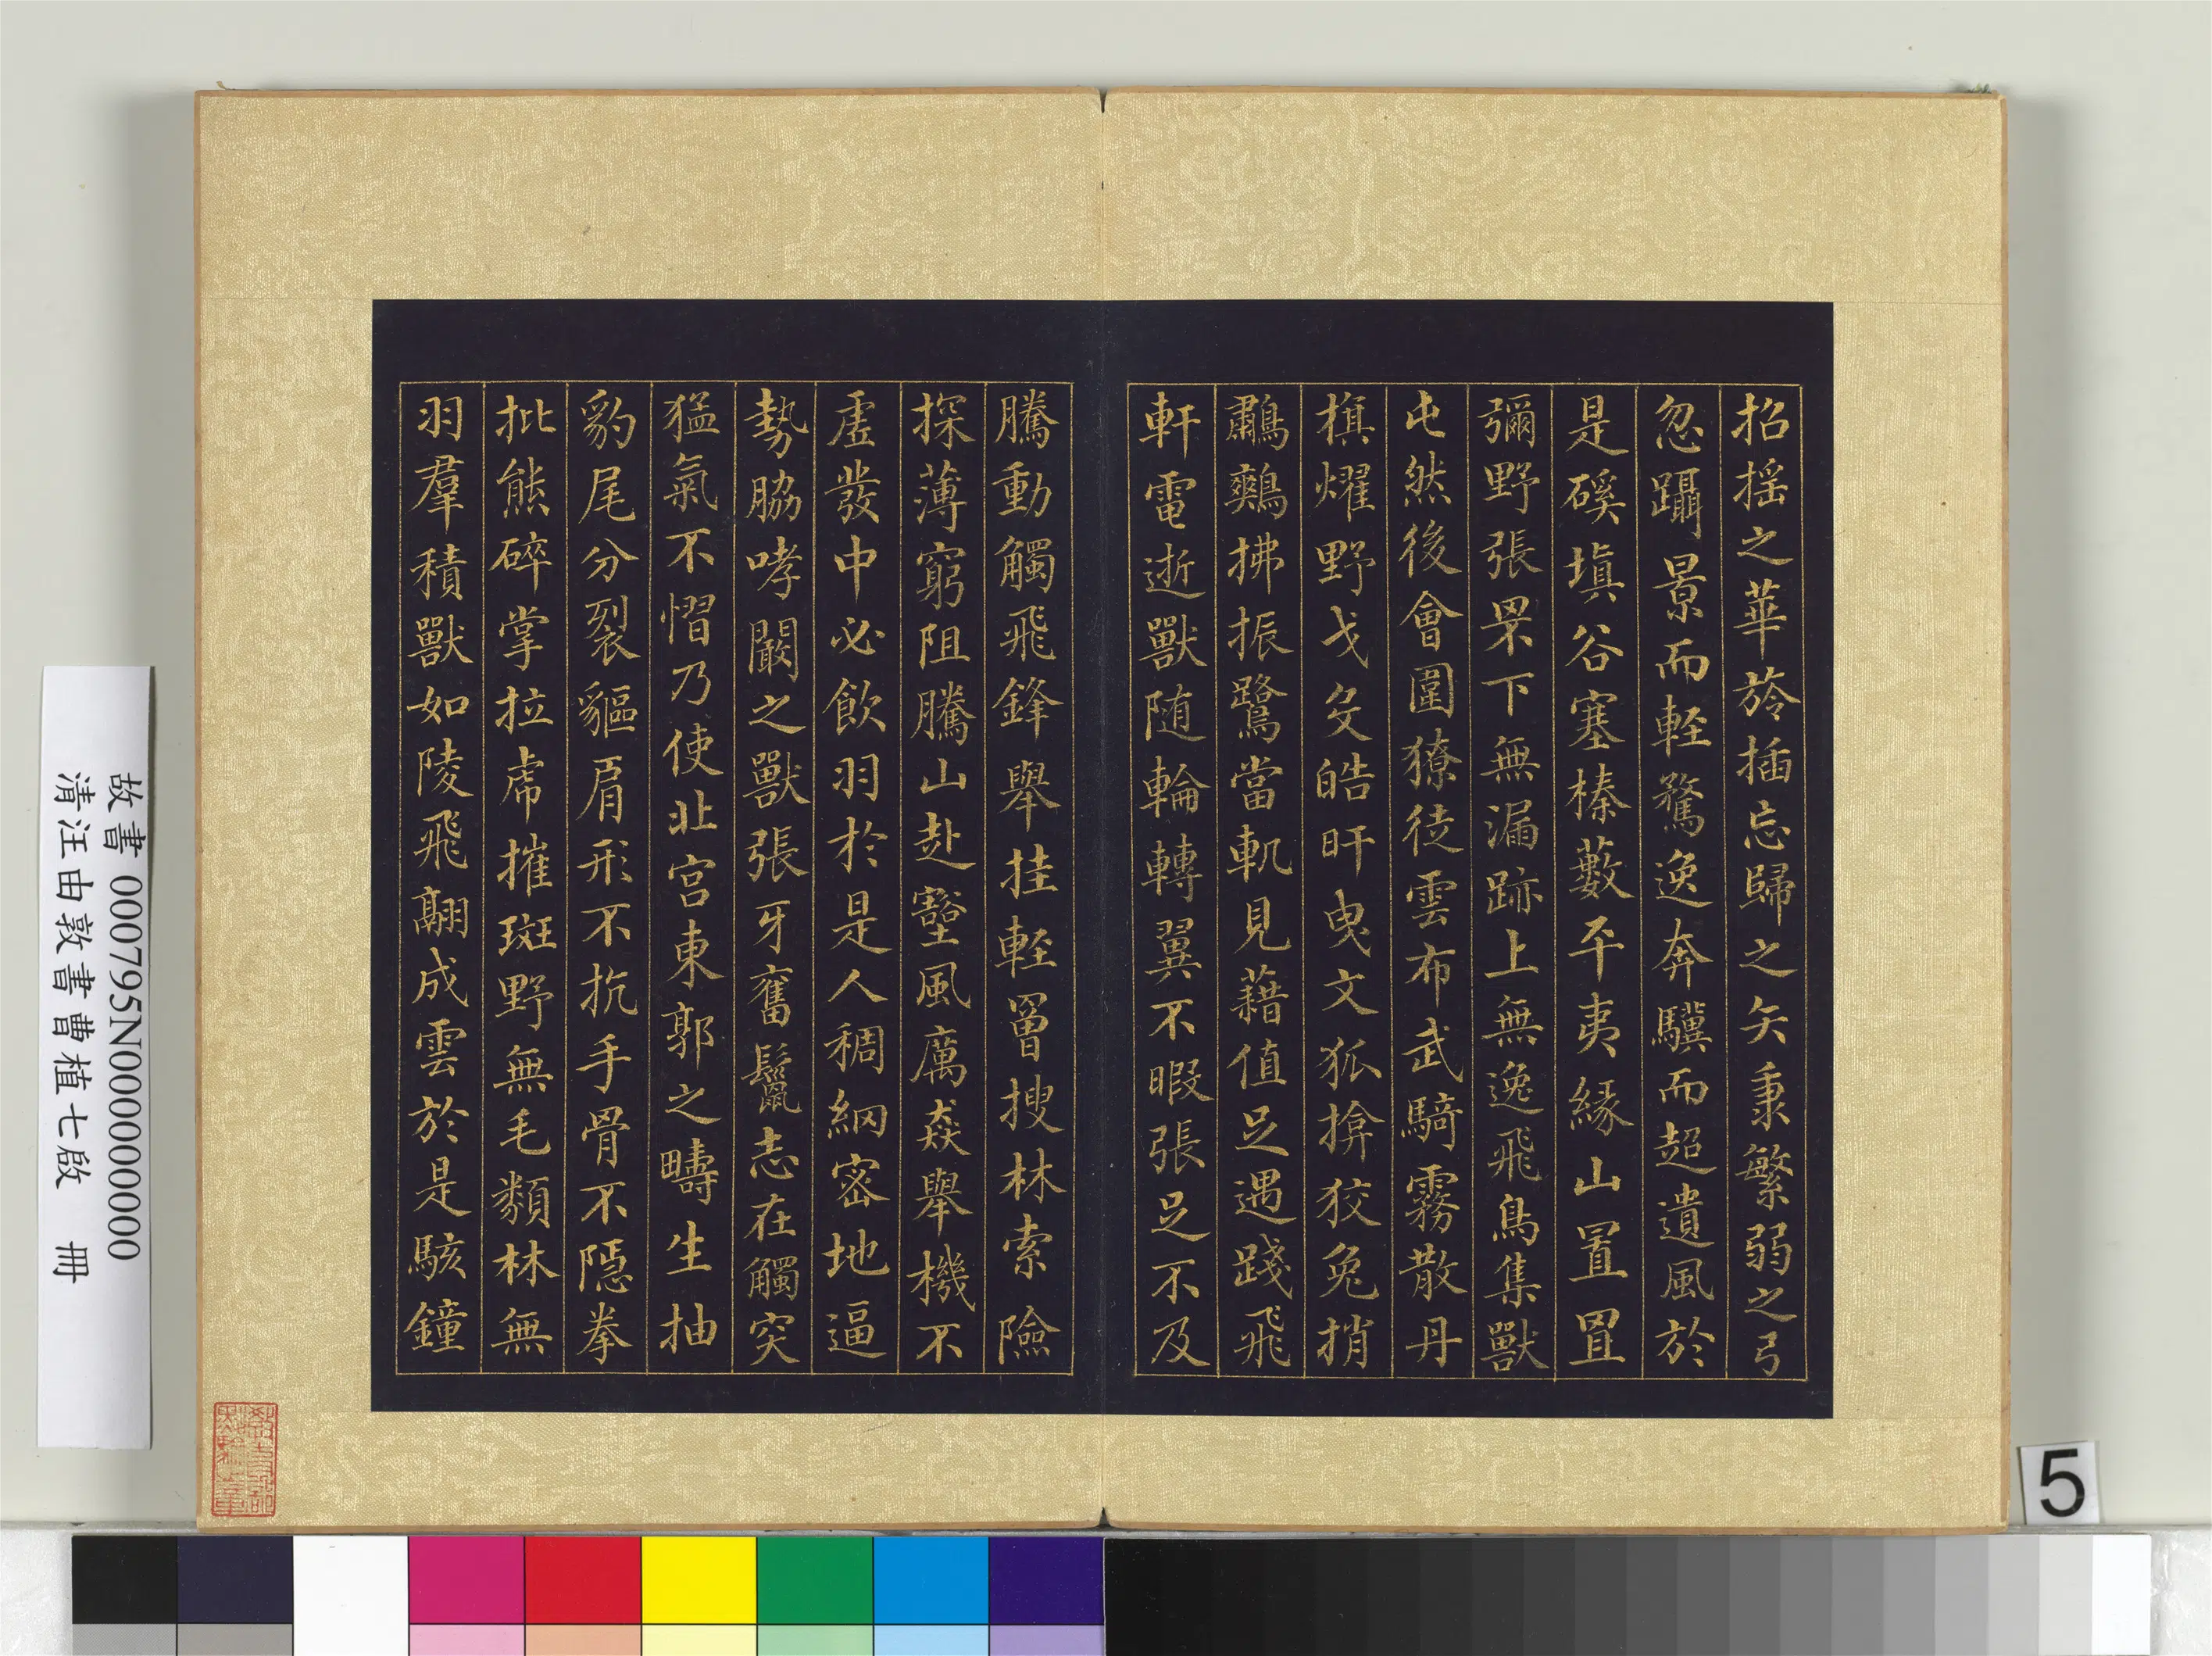 招搖之華旍插忘歸之矢秉繁弱之弓
忽躡景而輕騖逸奔驥而超遺風於
是磎填谷塞榛藪平夷緣山置罝
彌野張罘下無漏跡上無逸飛鳥集獸
屯然後會圍獠徒雲布武騎霧散丹
旗燿野戈殳皓旰曳文狐揜狡兔捎
鷫鷞拂振鷺當軌見藉值足遇踐飛
軒電逝獸随輪轉翼不暇張足不及
騰動觸飛鋒舉挂輕罾搜林索險
探薄窮阻騰山赴壑風厲猋舉機不
虛發中必飲羽於是人稠網密地逼
勢脇哮闞之獸張牙奮鬣志在觸突
猛氣不慴乃使北宫東郭之疇生抽
豹尾分裂貙肩形不抗手骨不隱拳
批熊碎掌拉虎摧斑野無毛類林無
羽羣積獸如陵飛翮成雲於是駭鐘
故書 000795N000000000
清汪由敦書曹植七啟 冊
5